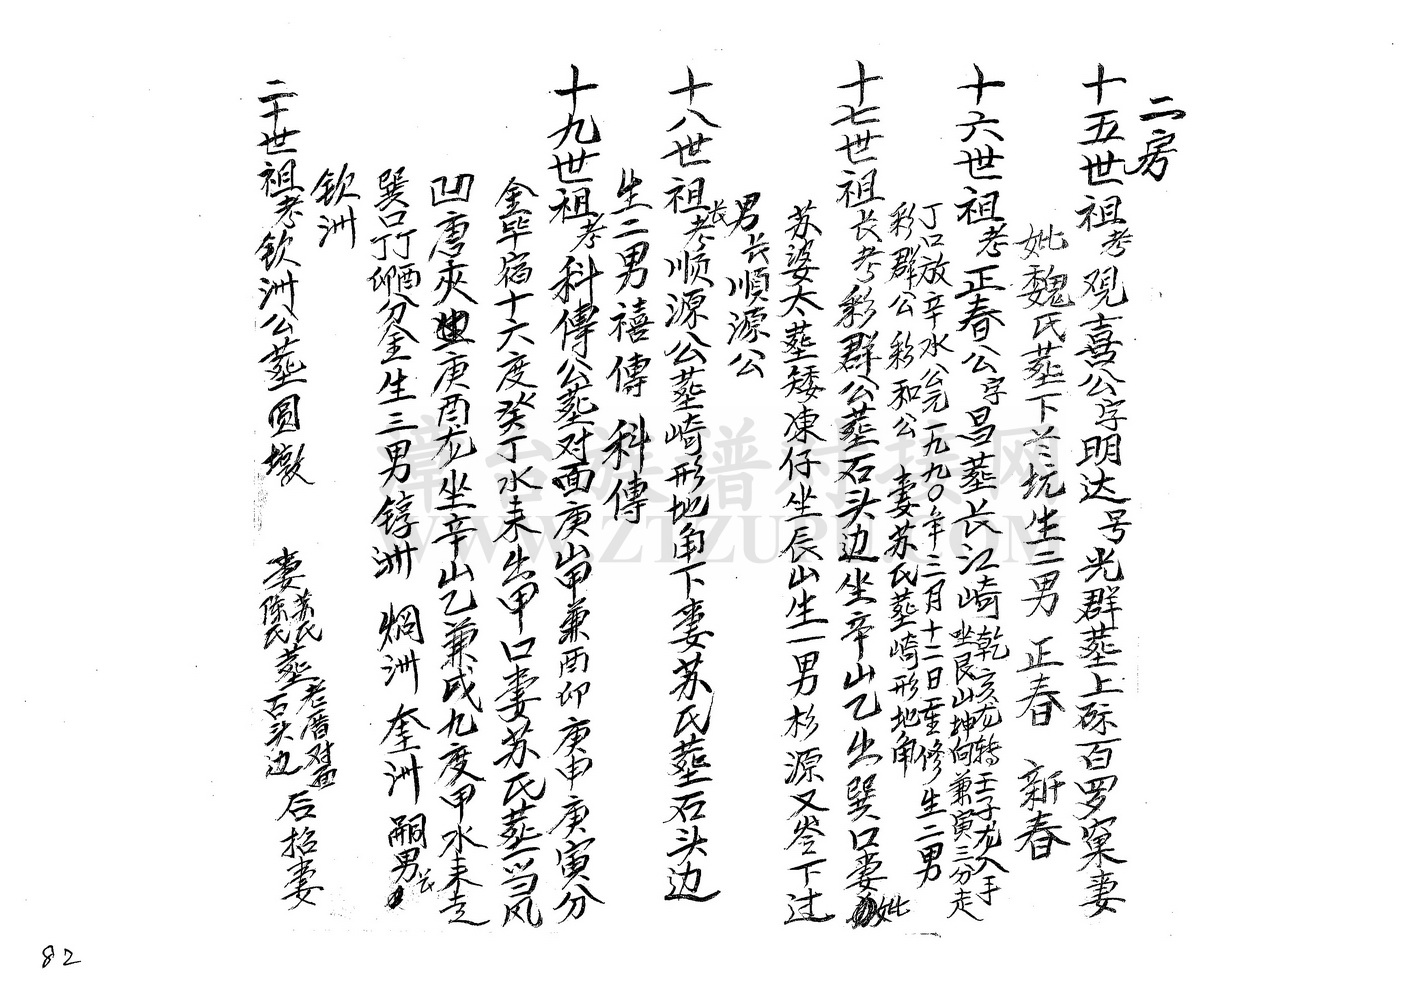 二房
十五世祖考观喜公字明达号光群墓上砾百罗窠妻
妣魏氏墓下兰坑生二男 正春 新春
十六世祖考正春公字昌墓长江崎乾亥龙转壬子龙入手
坐艮山坤向兼寅三分走
丁口放辛水公元一九九〇年三月十二日重修生二男
彩群公 彩和公 妻苏氏墓崎形地角
十七世祖长考彩群公墓石头边坐辛山乙出巽口妻妣
苏婆太墓矮凍仔坐辰山生一男杉源又岺下过
男长順源公
十八世祖长考顺源公墓崎形地角下妻苏氏墓石头边
生二男禧傳 科傳
十九世祖考科傳公墓对面庚山甲兼酉卯庚申庚寅分
金毕宿十六度癸丁水来出甲口妻苏氏墓当风
凹唐夹 庚酉龙坐辛山乙兼戍九度甲水来走
巽口丁酉卯分金生三男錞洲 烱洲 奎洲 嗣男长
钦洲
二十世祖考钦洲公墓圆墩 妻苏氏陈氏墓老厝对面石头边后招妻
82
章台族谱对接网
WWW.ZTZUPU.COM